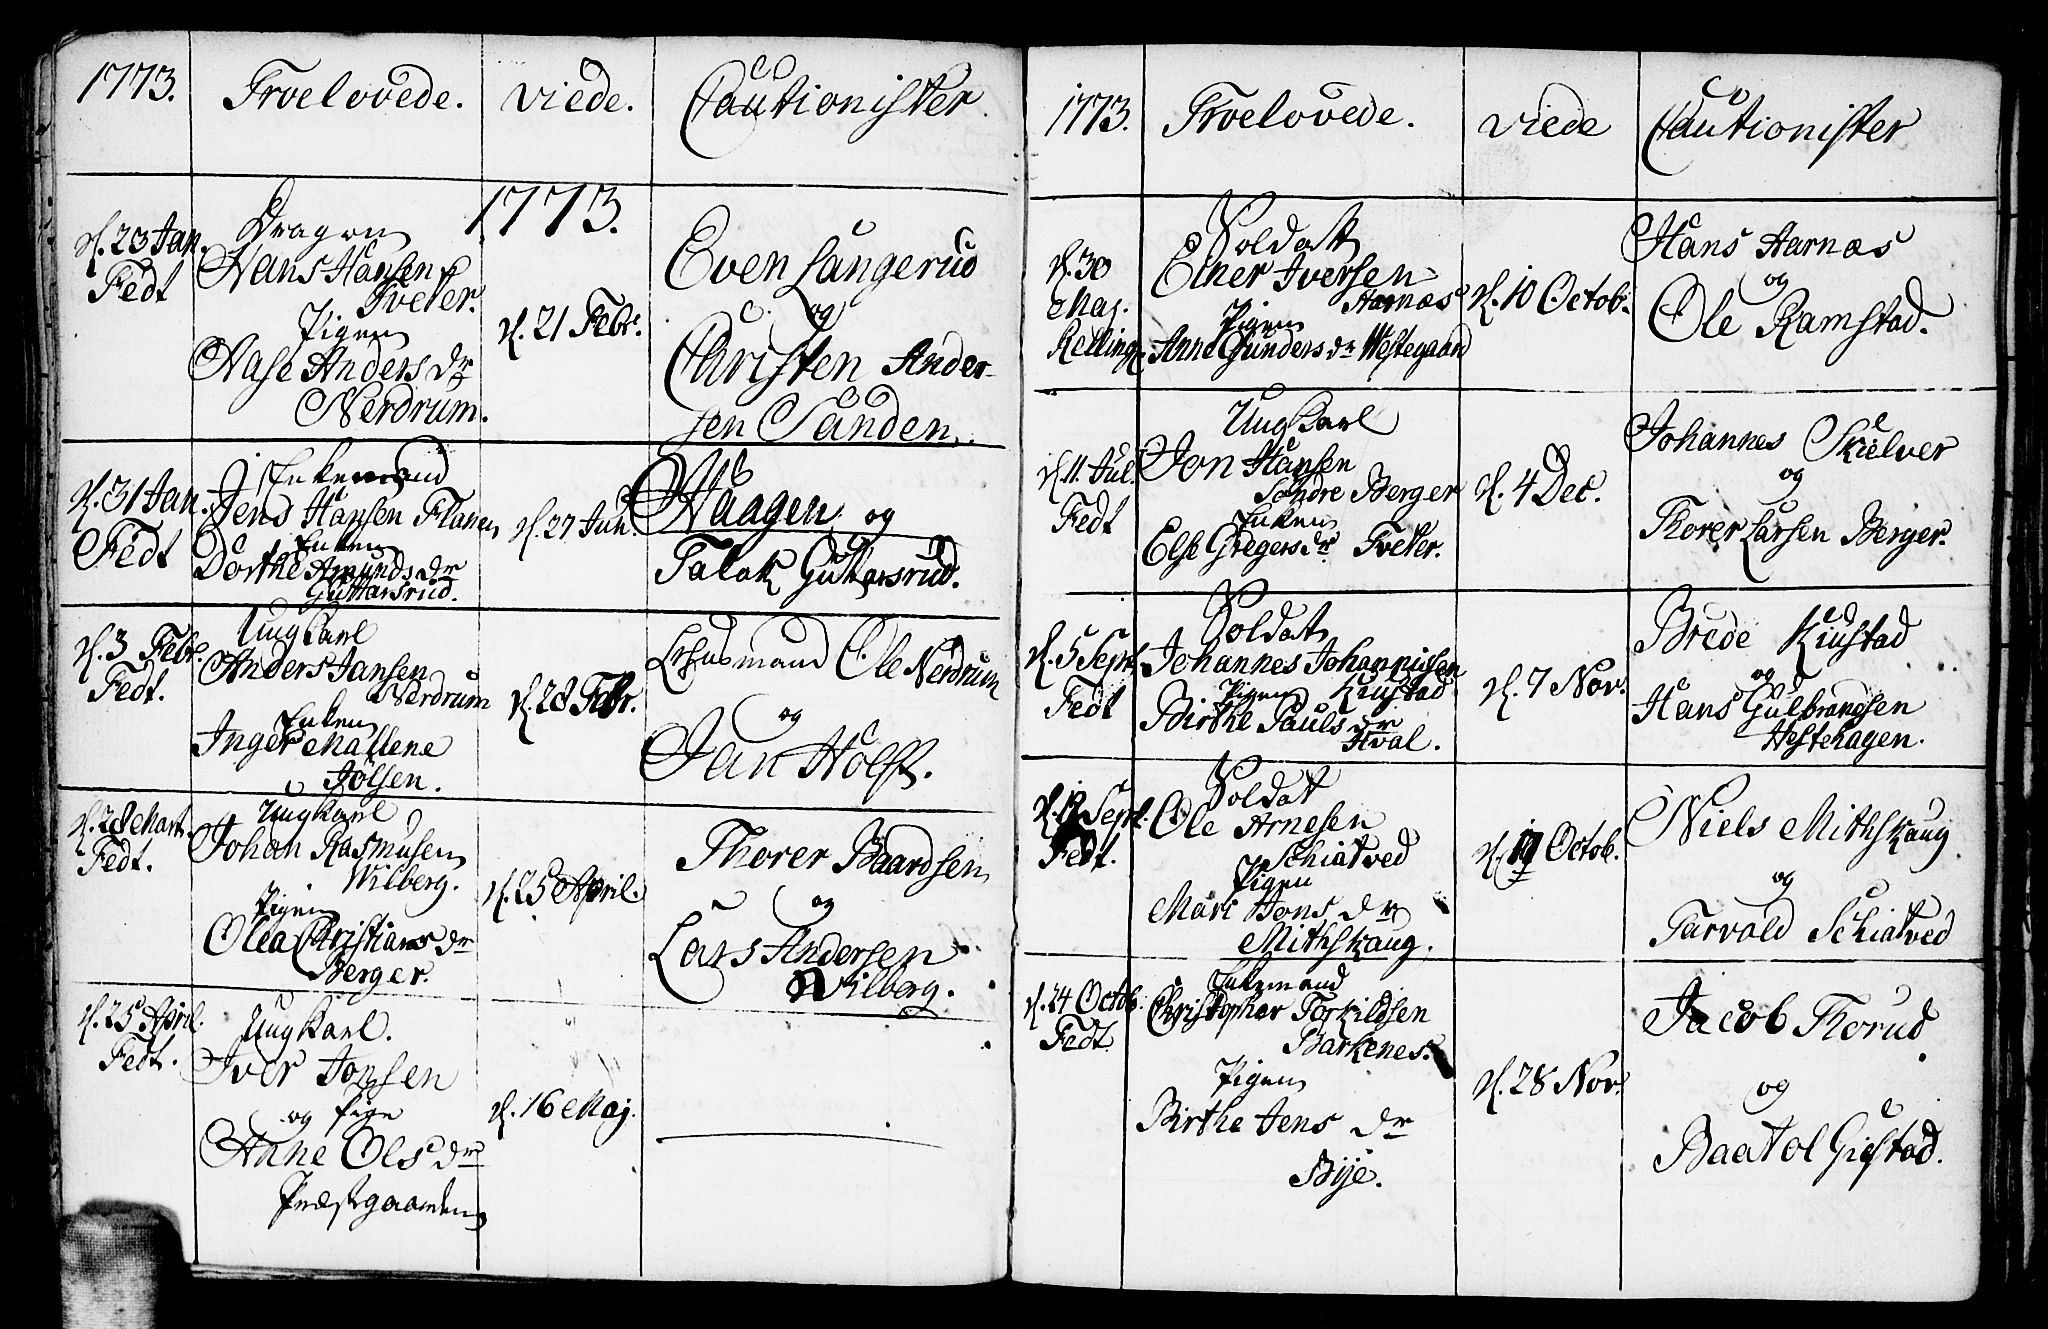 1773. Troelovede. Viede. Cautionister.
1773.
d. 23 Jan.
Fedt
Dragon
Hans Hansen
Tveter.
Pigen
Aase Anders dr
Nerdrum.
d. 21 Febr.
Even Langerud
og
Christen Ander-
sen Sanden.
d. 31 Jan.
Fedt
Enkemand
Jens Hansen Flanen
Enken
Dorthe Amunds dr
Guttersrud.
d. 27 Jun.
Haagen og
Talak Guttersrud.
d. 3 Febr.
Fedt.
Ung Karl
Anders Jansen
Nerdrum
Enken
Inger Mallene
Jølsen.
d. 28 Febr.
Lehnsmand Ole Nerdrum
og
Jan Holst.
d. 28 Mart.
Fedt.
Ung Karl
Johan Rasmusen
Wilberg.
Pigen
Olea Christians dr
Berger.
d. 25 April.
Thorer Baardsen
og
Lars Andersen
Wilberg.
d. 25 April.
Fedt.
Ung Karl.
Iver Jonsen
og Pige
Anne Ols dr
Præstgaarden
d. 16 Maj.
1773. Troelovede. Viede Cautionister
d. 30
Maj.
Relling
Soldat
Einer Iversen
Aarnæs
Pigen
Anne Gunders dr Westegaard
d. 10 Octob.
Hans Aarnæs
og
Ole Ramstad.
d. 11 Jul.
Fedt
Ung Karl
Jon Hansen
Søndre Berger
Enken
Else Gregers dr Tveter.
d. 4 Dec.
Johannes Skielver
og
Thorer Larsen Berger.
d. 5 Sept.
Fedt
Soldat
Johannes Johannissen
Pigen Kiustad
Birthe Pauls dr
Hval.
d. 7 Nov.
Brede Kiustad
og
Hans Gulbrandsen
Hestehagen.
d. 12 Sept.
Fedt.
Soldat
Ole Arnesen
Schiatved
Pigen
Mari Jons dr
Mithskaug.
Octob.
Niels Mithskaug
og
Tarvold Schiatved
d. 24 Octob.
Fedt.
Enkemand
Christopher Torkildsen
Barkenes.
Pigen
Birthe Jens dr
Bÿe.
d. 28 Nov.
Jacob Thorud
og
Baatol Gistad.